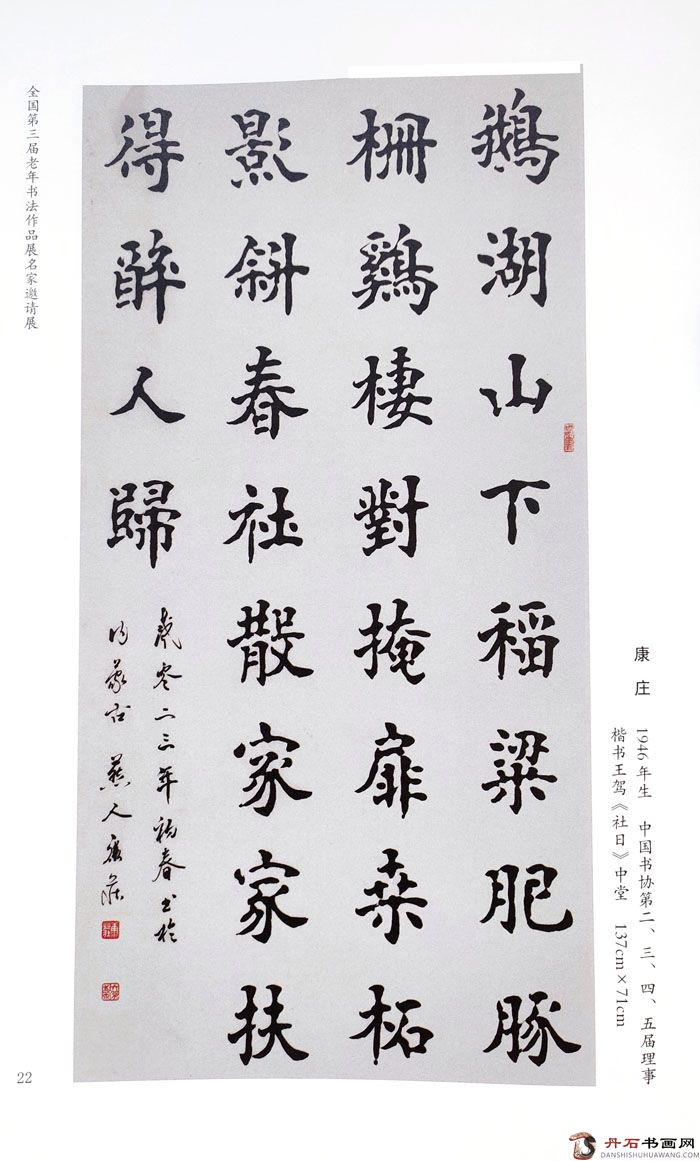 全国第三届老年书法作品展名家邀请展
鵝湖山下稻粱肥豚
柵鷄棲對掩扉桑柘
影斜春社散家家扶
得醉人歸
零二三年初春书於
燕人康莊
康庄
1946年生 中国书协第二、三、四、五届理事
楷书王驾《社日》中堂 137cm×71cm
22
丹石书画网
DANSHISHUHUAWANG.COM